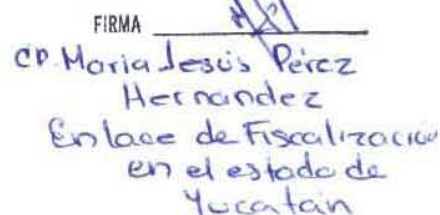 FIRMA
CP. Maria Jesús Pérez
Hernandez
Enlace de Fiscalización
en el estado de
Yucatán